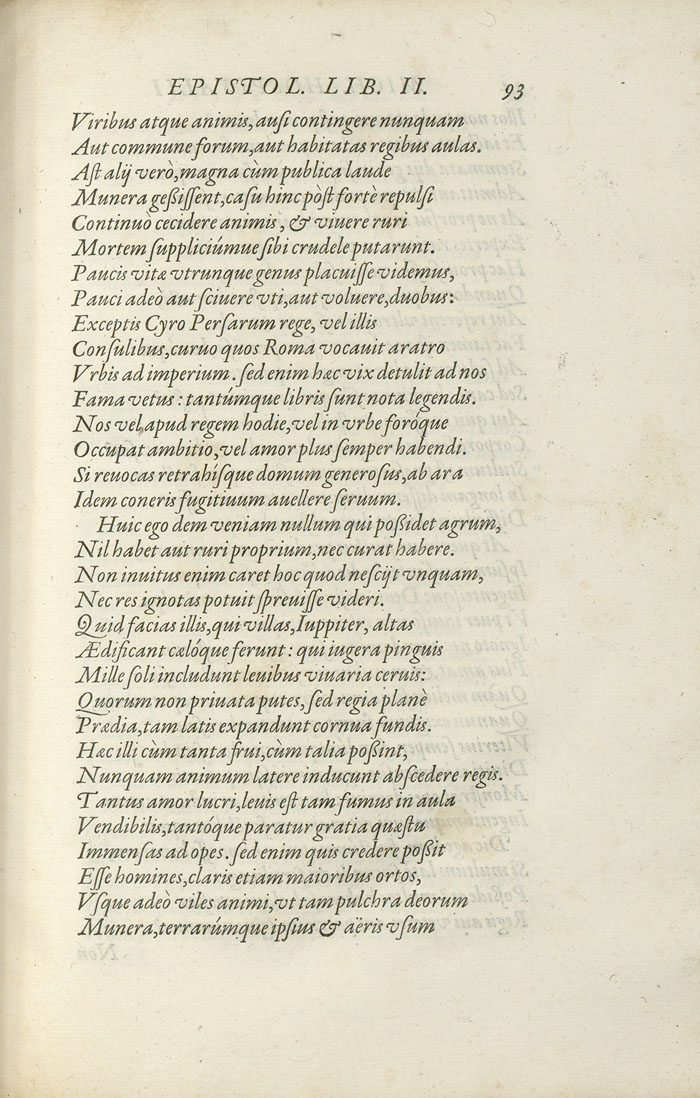 EPISTOL. LIB. II. 93
Viribus atque animis, ausi contingere nunquam
Aut commune forum, aut habitatas regibus aulas.
Ast alij verò, magna cùm publica laude
Munera geßissent, casu hinc pòst fortè repulsi
Continuò cecidere animis, & viuere ruri
Mortem suppliciúmue sibi crudele putarunt.
Paucis vitæ vtrunque genus placuisse videmus,
Pauci adeò aut sciuere vti, aut voluere, duobus:
Exceptis Cyro Persarum rege, vel illis
Consulibus, curuo quos Roma vocauit aratro
Vrbis ad imperium. sed enim hæc vix detulit ad nos
Fama vetus: tantúmque libris sunt nota legendis.
Nos vel, apud regem hodie, vel in vrbe foróque
Occupat ambitio, vel amor plus semper habendi.
Si reuocas retrahísque domum generosus, ab ara
Idem coneris fugitiuum auellere seruum.
Huic ego dem veniam nullum qui poßidet agrum,
Nil habet aut ruri proprium, nec curat habere.
Non inuitus enim caret hoc quod nescijt vnquam,
Nec res ignotas potuit spreuisse videri.
Quid facias illis, qui villas, Iuppiter, altas
Ædificant cælóque ferunt: qui iugera pinguis
Mille soli includunt leuibus viuaria ceruis:
Quorum non priuata putes, sed regia planè
Prædia, tam latis expandunt cornua fundis.
Hæc illi cùm tanta frui, cùm talia poßint,
Nunquam animum latere inducunt abscedere regis.
Tantus amor lucri, leuis est tam fumus in aula
Vendibilis, tantóque paratur gratia quæstu
Immensas ad opes. sed enim quis credere poßit
Esse homines, claris etiam maioribus ortos,
Vsque adeò viles animi, vt tam pulchra deorum
Munera, terrarúmque ipsius & aëris vsum